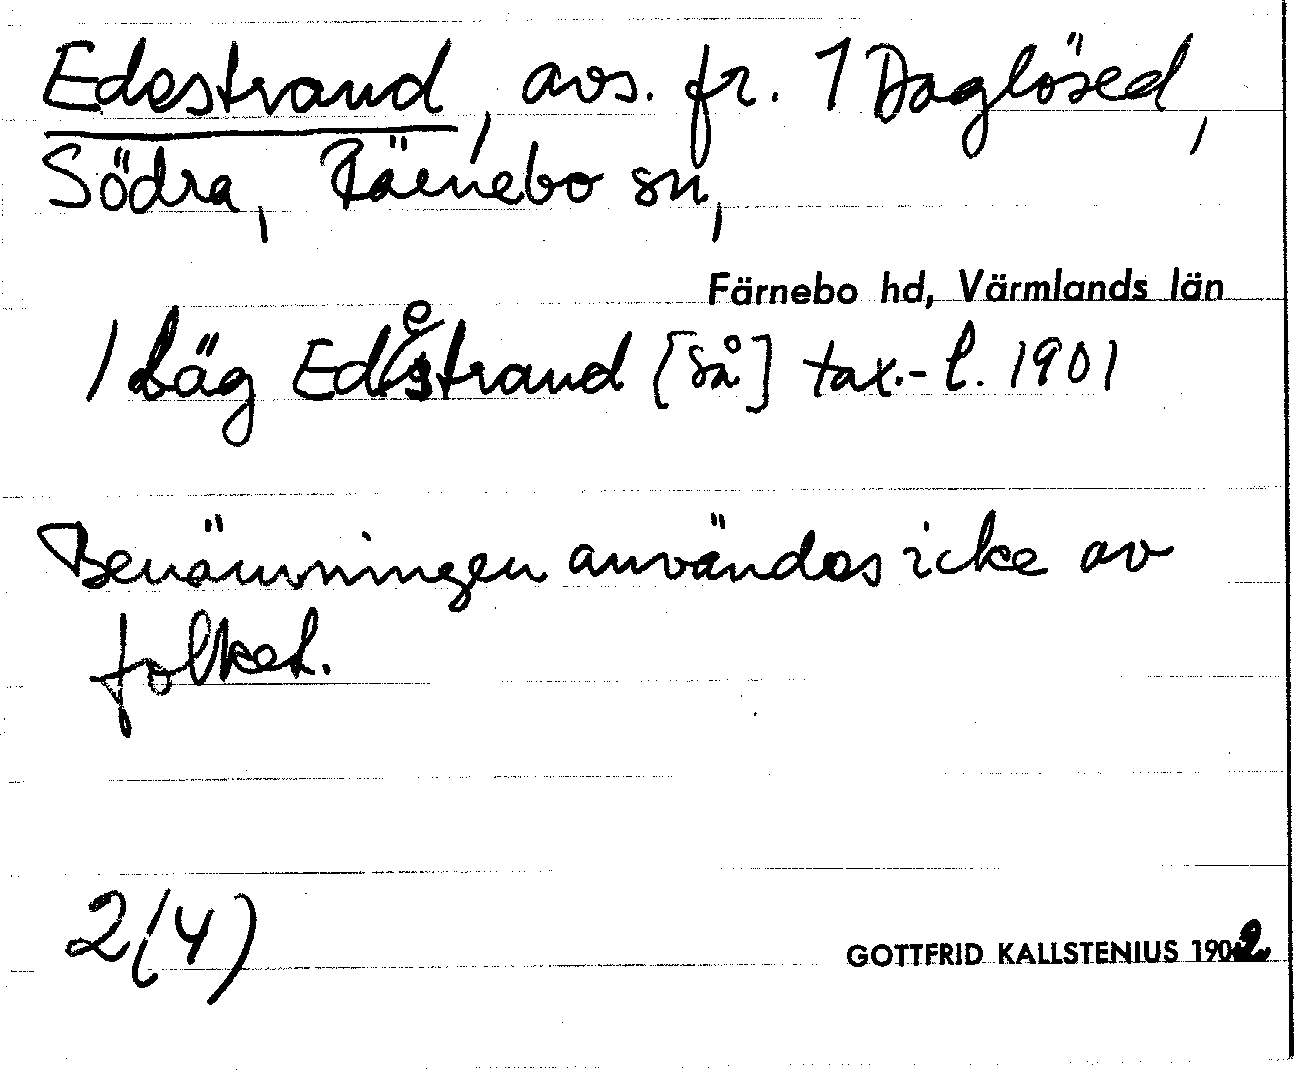 Edestrand, avs. fr. 1 Daglösed,
Södra, Rämebo sn,
Färnebo hd, Värmlands län
1 Läg Edestrand [så] tax.-l. 1901
Benämningen användes icke av
folket.
2(4)
GOTTFRID KALLSTENIUS 1902